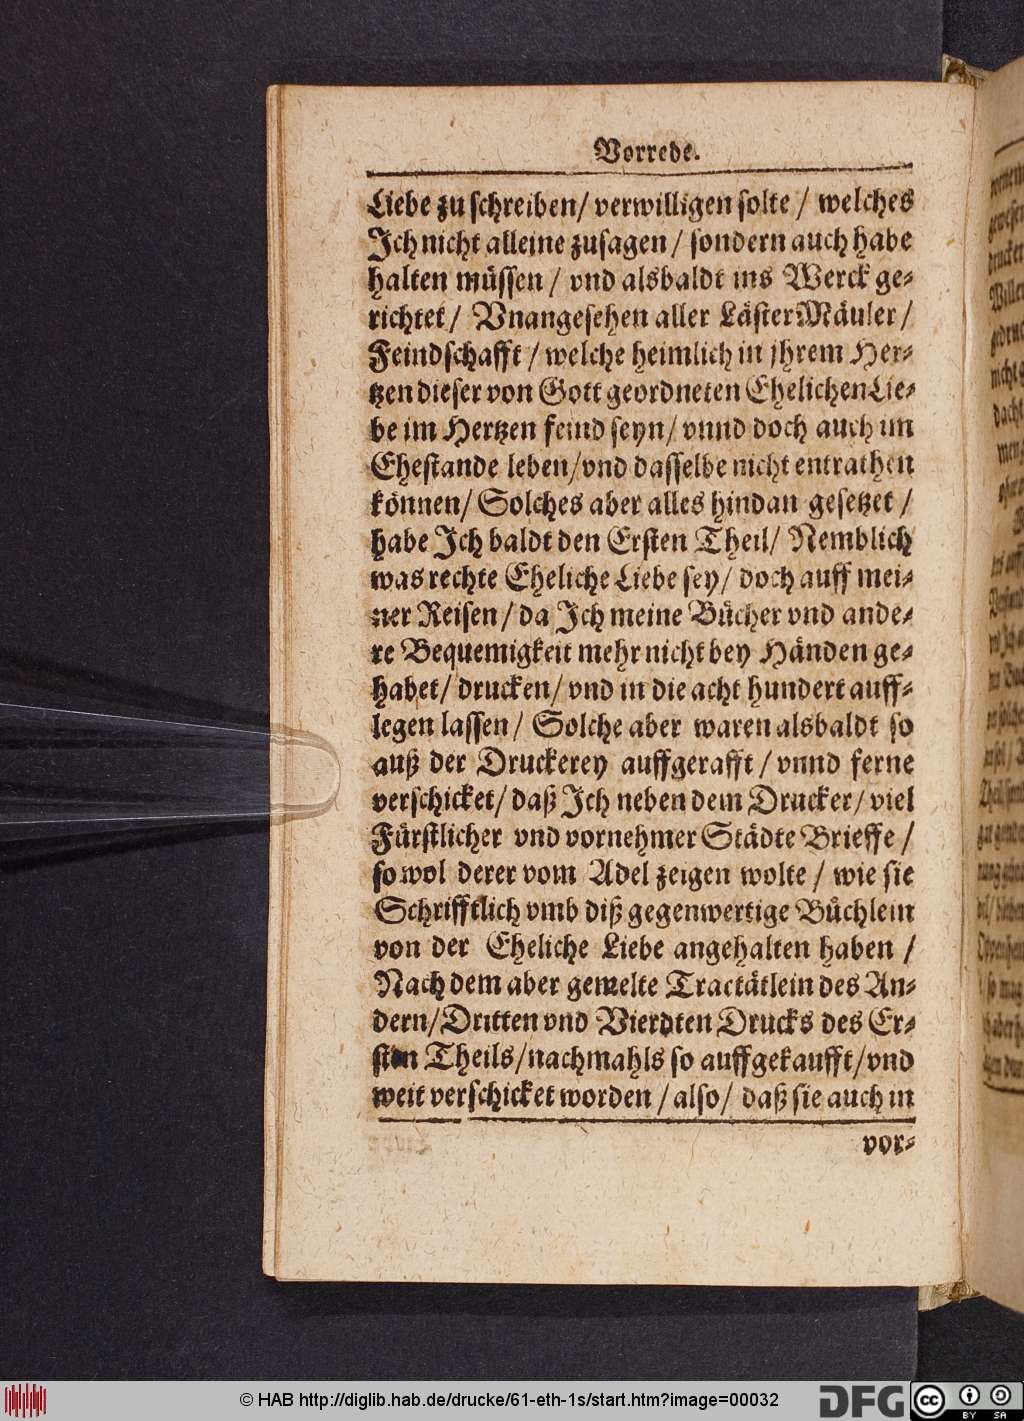 Vorrede.
Liebe zu schreiben/ verwilligen solte / welches
Ich nicht alleine zusagen / sondern auch habe
halten müssen / vnd alsbaldt ins Werck ge-
richtet / Vnangesehen aller LästerMäuler /
Feindschafft / welche heimlich in jhrem Her-
tzen dieser von Gott geordneten Ehelichen Lie-
be im Hertzen feind seyn/ vnnd doch auch im
Ehestande leben/vnd dasselbe nicht entrathen
können/ Solches aber alles hindan gesetzet /
habe Ich baldt den Ersten Theil/ Nemblich
was rechte Eheliche Liebe sey/ doch auff mei-
ner Reisen / da Ich meine Bücher vnd ande-
re Bequemigkeit mehr nicht bey Händen ge-
habet/ drucken/ vnd in die acht hundert auff-
legen lassen / Solche aber waren alsbaldt so
auß der Druckerey auffgerafft / vnnd ferne
verschicket/ daß Ich neben dem Drucker/ viel
Fürstlicher vnd vornehmer Städte Brieffe /
so wol derer vom Adel zeigen wolte / wie sie
Schrifftlich vmb diß gegenwertige Büchlein
von der Eheliche Liebe angehalten haben /
Nach dem aber gemelte Tractätlein des An-
dern/Dritten vnd Vierdten Drucks des Er-
sten Theils/nachmahls so auffgekaufft/vnd
weit verschicket worden / also/ daß sie auch in
vor-
© HAB http://diglib.hab.de/drucke/61-eth-1s/start.htm?image=00032
DFG
cc
BY SA